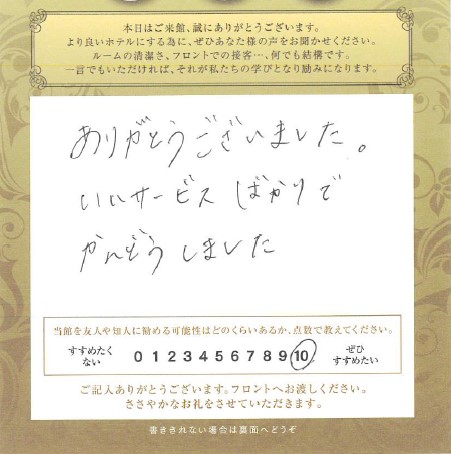 本日はご来館、誠にありがとうございます。
より良いホテルにする為に、ぜひあなた様の声をお聞かせください。
ルームの清潔さ、フロントでの接客…、何でも結構です。
一言でもいただければ、それが私たちの学びとなり励みになります。
ありがとうございました。
いいサービスばかりで
かんどうしました
当館を友人や知人に勧める可能性はどのくらいあるか、点数で教えてください。
すすめたくない 0 1 2 3 4 5 6 7 8 9 10 ぜひすすめたい
ご記入ありがとうございます。フロントへお渡しください。
ささやかなお礼をさせていただきます。
書ききれない場合は裏面へどうぞ